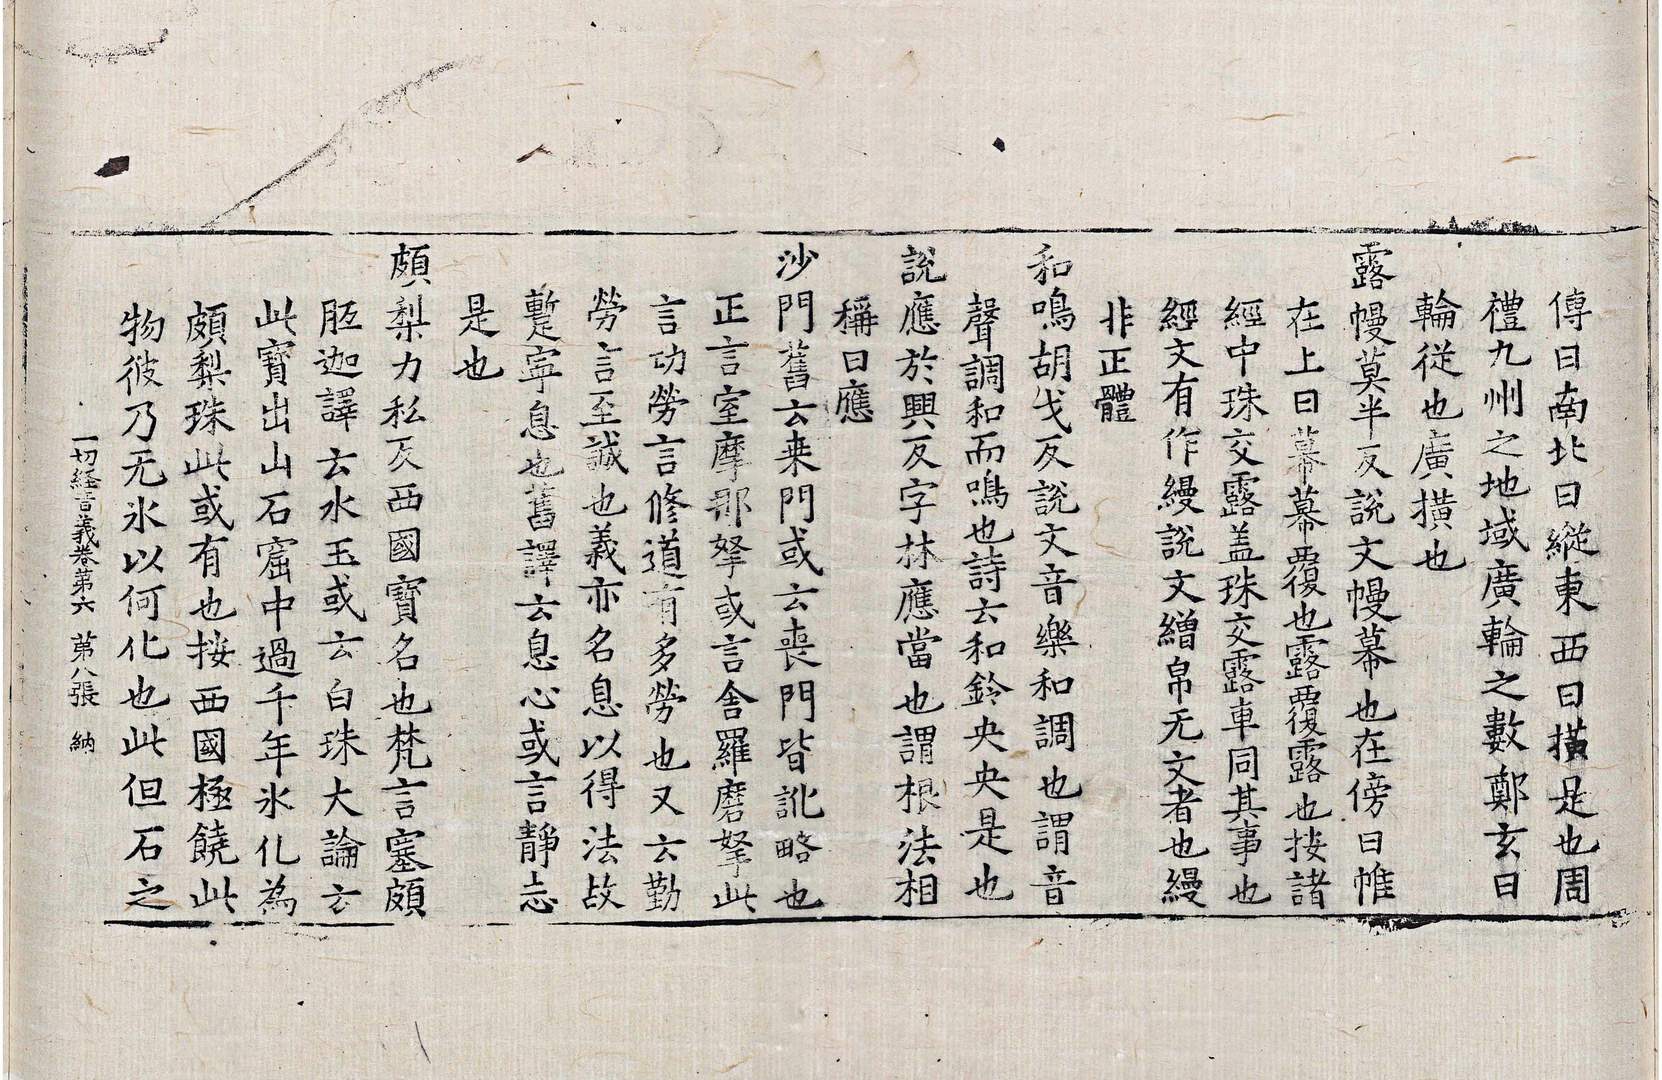 傳曰南北曰縱東西曰撗是也周
禮九州之地域廣輪之數鄭玄曰
輪從也廣撗也
露幔莫半反說文幔幕也在傍曰帷
在上曰幕幕覆也露覆露也按諸
經中珠交露盖珠交露車同其事也
經文有作縵說文繒帛无文者也縵
非正體
和鳴胡戈反說文音樂和調也謂音
聲調和而鳴也詩云和鈴央央是也
說應於興反字林應當也謂根法相
稱曰應
沙門舊云桒門或云喪門皆訛略也
正言室摩那拏或言舍羅磨拏此
言功勞言修道有多勞也又云勤
勞言至誠也義亦名息以得法故
蹔寧息也舊譯云息心或言靜志
是也
頗梨力私反西國寶名也梵言塞頗
胝迦譯云水玉或云白珠大論云
此寶出山石窟中過千年氷化為
頗梨珠此或有也按西國極饒此
物彼乃无氷以何化也此但石之
一切経音義卷第六 第八張 納